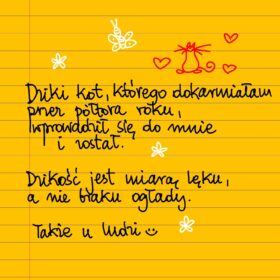 Dziki kot, którego dokarmiałam
przez półtora roku,
wprowadził się do mnie
i został.
Dzikość jest miarą lęku,
a nie braku ogłady.
Takie u ludzi